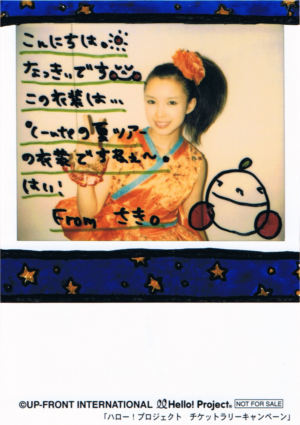 こんにちは。
なっきぃです
この衣装は…
℃-uteの夏ツアー
の衣装ですねぇ〜。
はい!
From さき。
©UP-FRONT INTERNATIONAL Hello! Project® NOT FOR SALE
「ハロー!プロジェクト チケットラリーキャンペーン」